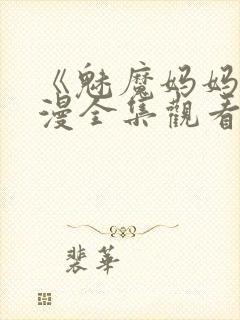 《魅魔妈妈
漫全集觀看
裴華